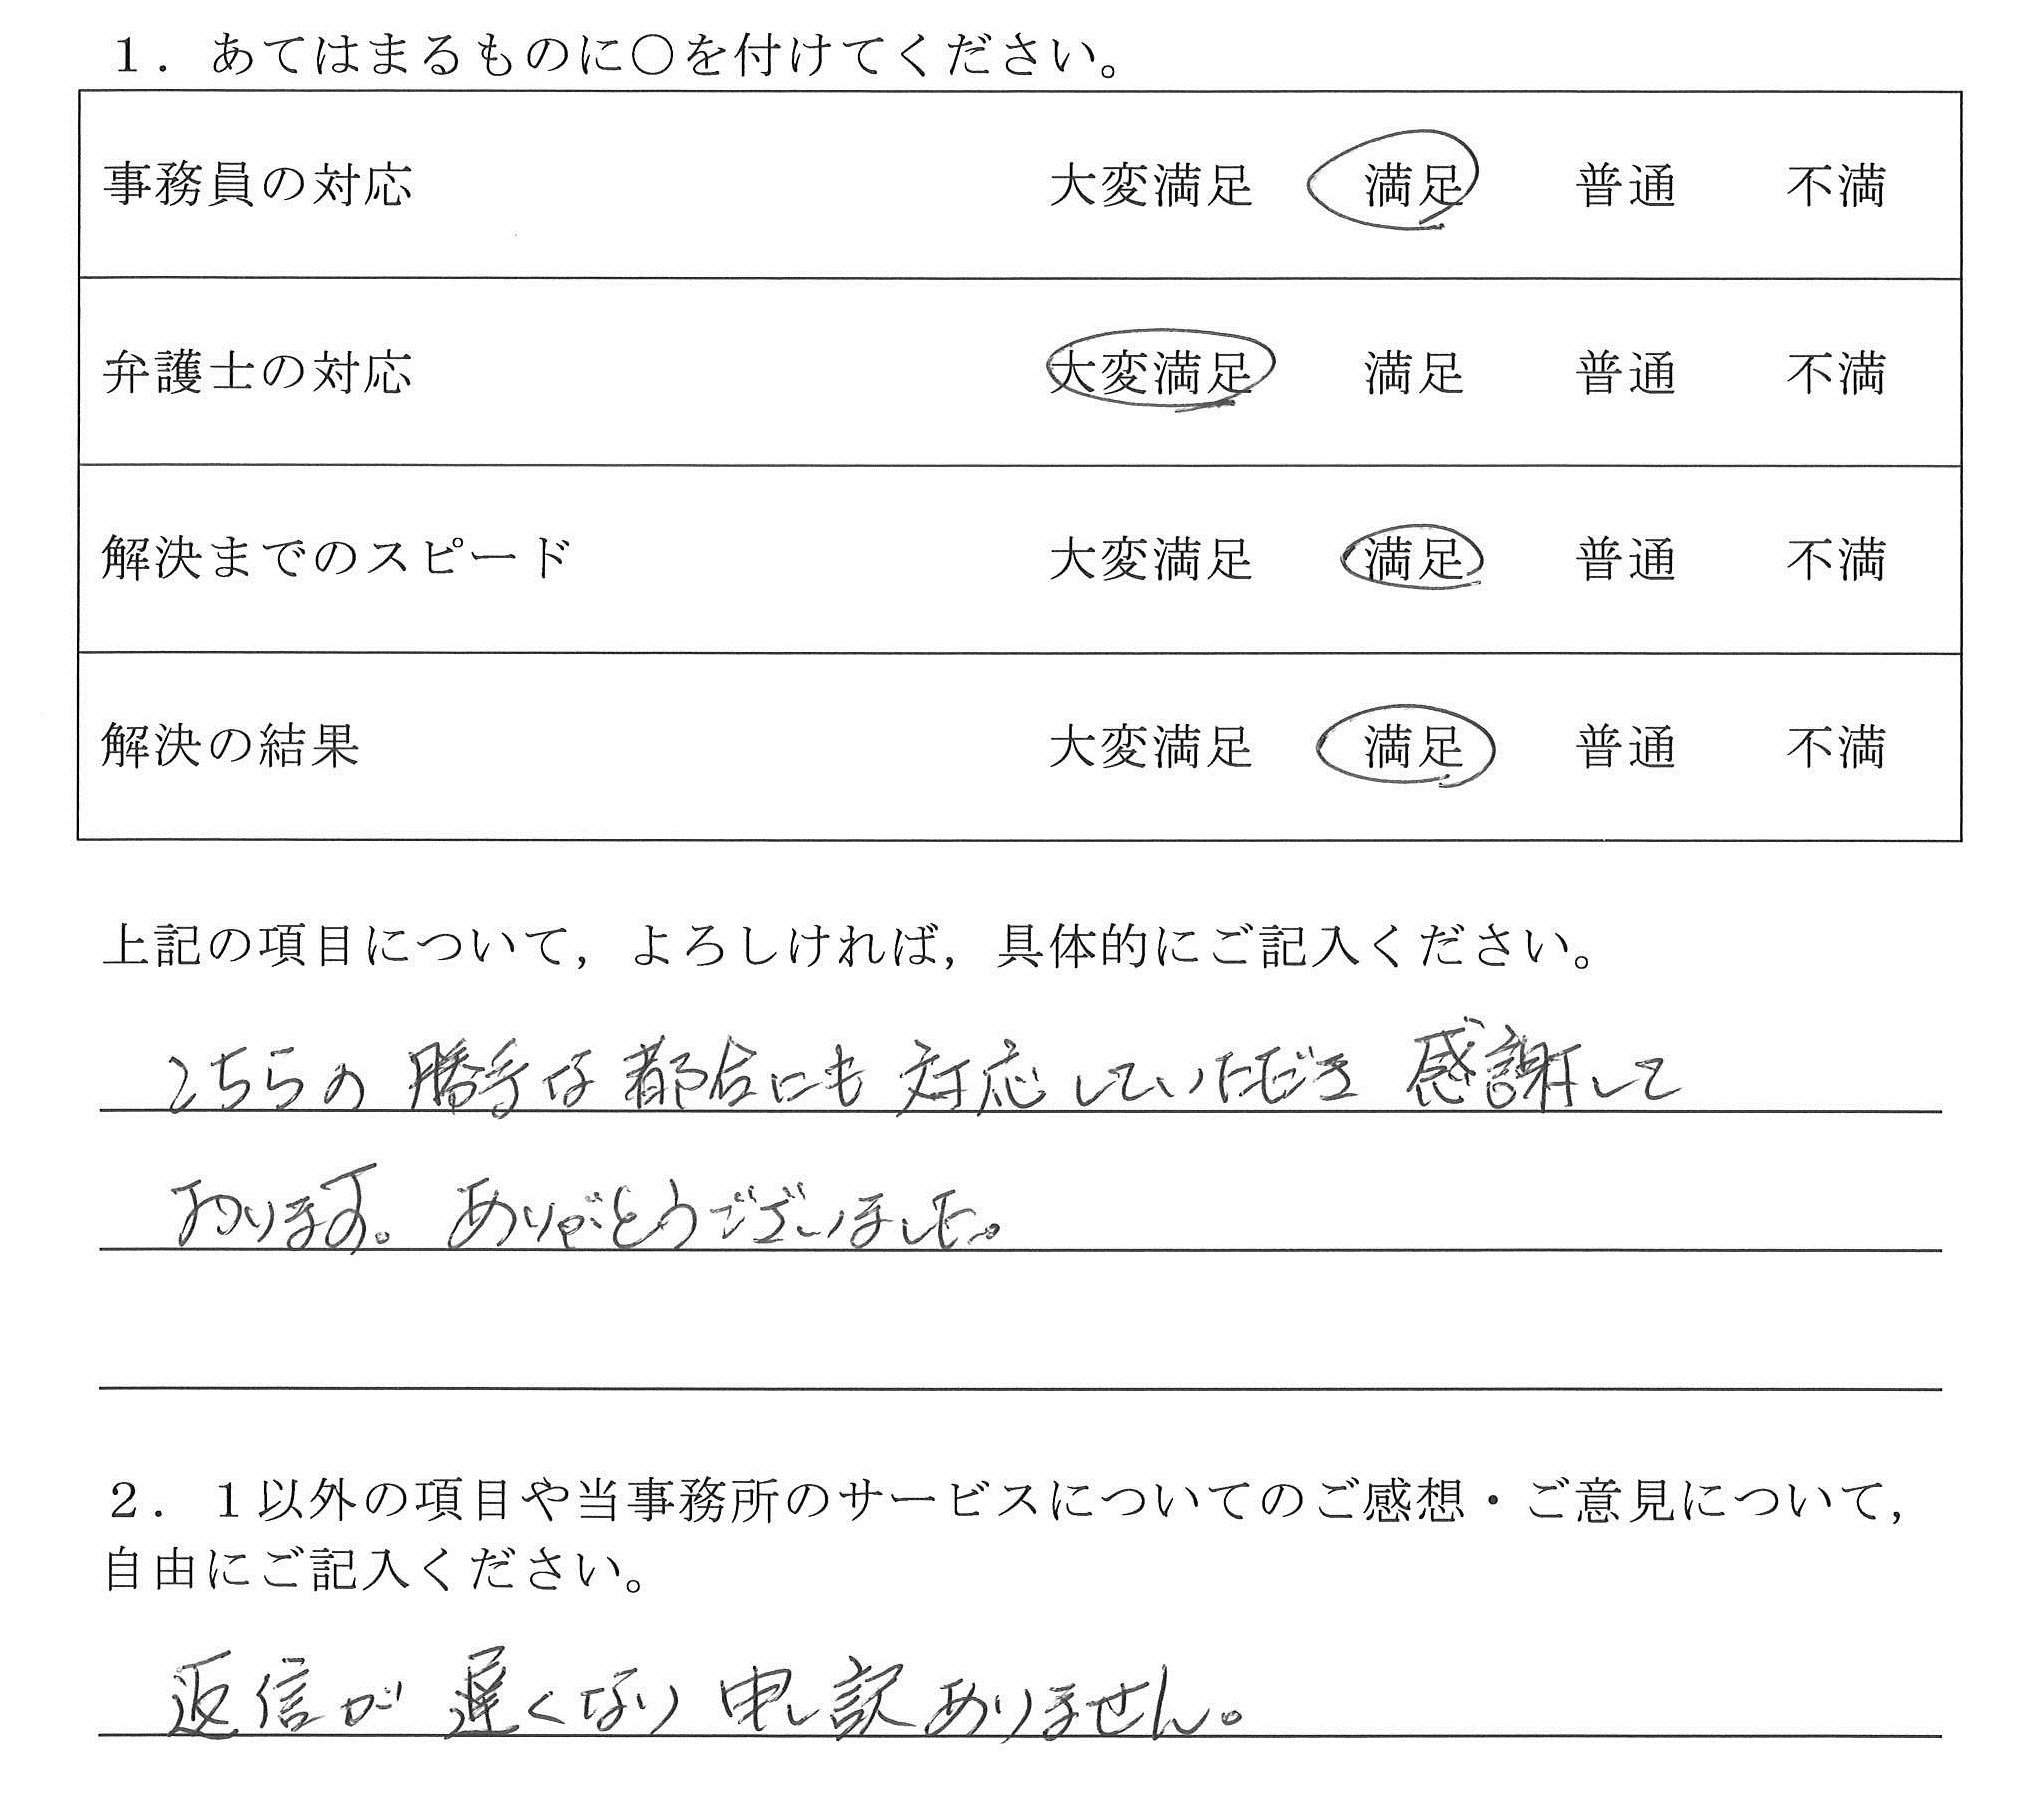 １．あてはまるものに○を付けてください。
事務員の対応 大変満足 満足 普通 不満
弁護士の対応 大変満足 満足 普通 不満
解決までのスピード 大変満足 満足 普通 不満
解決の結果 大変満足 満足 普通 不満
上記の項目について，よろしければ，具体的にご記入ください。
こちらの勝手な都合にも対応していただき感謝して
おります。ありがとうございました。
２．１以外の項目や当事務所のサービスについてのご感想・ご意見について，
自由にご記入ください。
返信が遅くなり申し訳ありません。